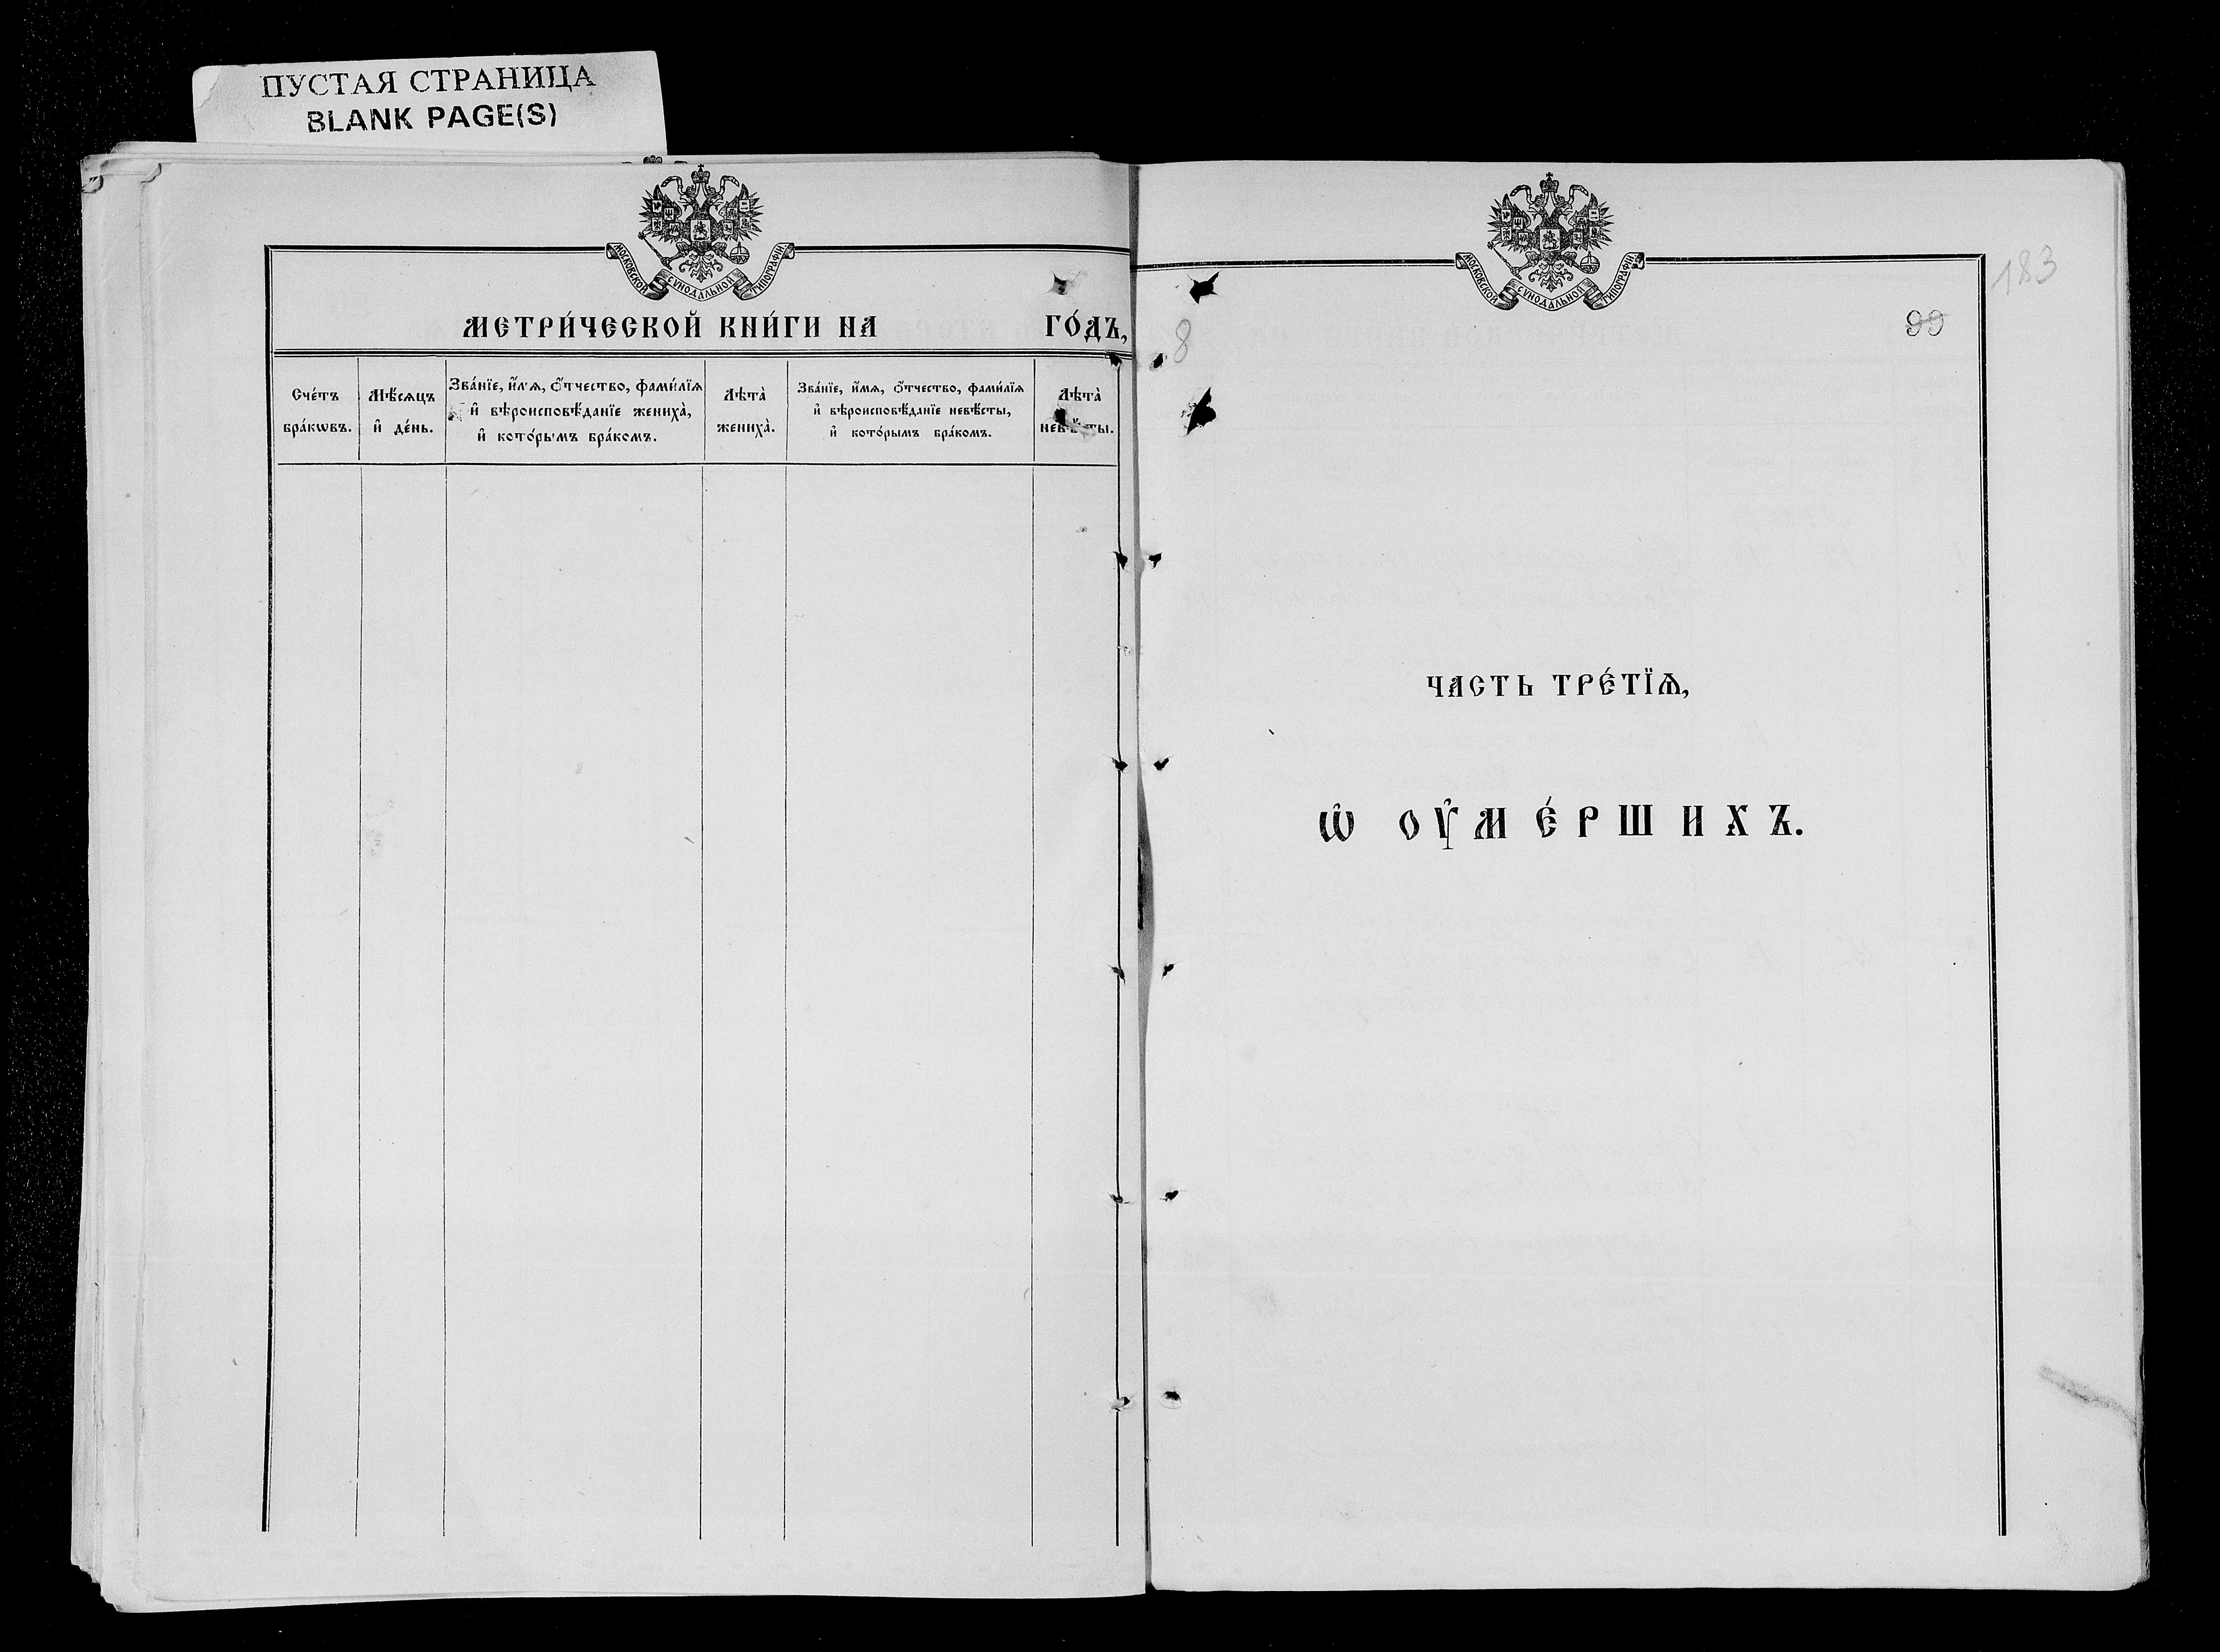 ПУСТАЯ СТРАНИЦА
BLANK PAGE(S)
МОСКОВСКОЙ СѴНОДАЛЬНОЙ ТИПОГРАФІИ
МЕТРИ́ЧЕСКОЙ КНИ́ГИ НА ГО́ДЪ,
Сче́тъ
бра́кѡвъ.
Мѣ́сѧцъ
и҆ де́нь.
Зва́нїе, и҆́мѧ, ѻ҆́тчество, фами́лїѧ
и҆ вѣроисповѣ́данїе жениха̀,
и҆ кото́рымъ бра́комъ.
Лѣта̀
жениха̀.
Зва́нїе, и҆́мѧ, ѻ҆́тчество, фами́лїѧ
и҆ вѣроисповѣ́данїе невѣ́сты,
и҆ кото́рымъ бра́комъ.
Лѣта̀
невѣ́сты.
МОСКОВСКОЙ СѴНОДАЛЬНОЙ ТИПОГРАФІИ
183
99
8
ЧАСТЬ ТРЕ́ТЇѦ,
Ѡ҆ ОУ҆МЕ́РШИХЪ.